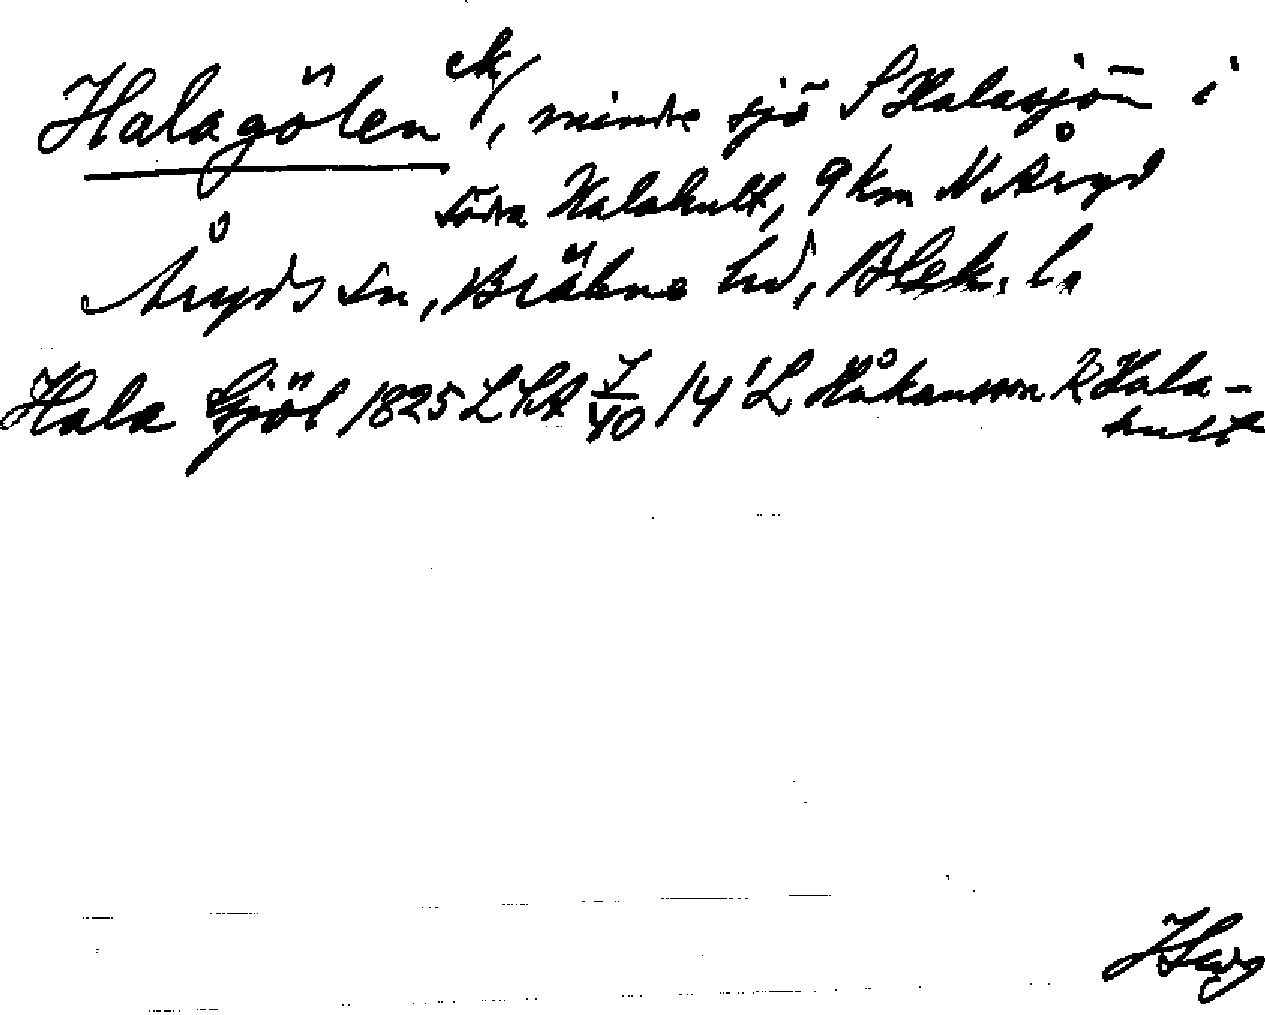 Halagölen ek/, mindre sjö S Halasjön i
södra Halahult, 9 km N Åryd
Åryds sn, Bräkne hd, Blek. l.
Hala Gjöl 1825 LSA 7/40 14 'L Håkansson k Hala-
hult